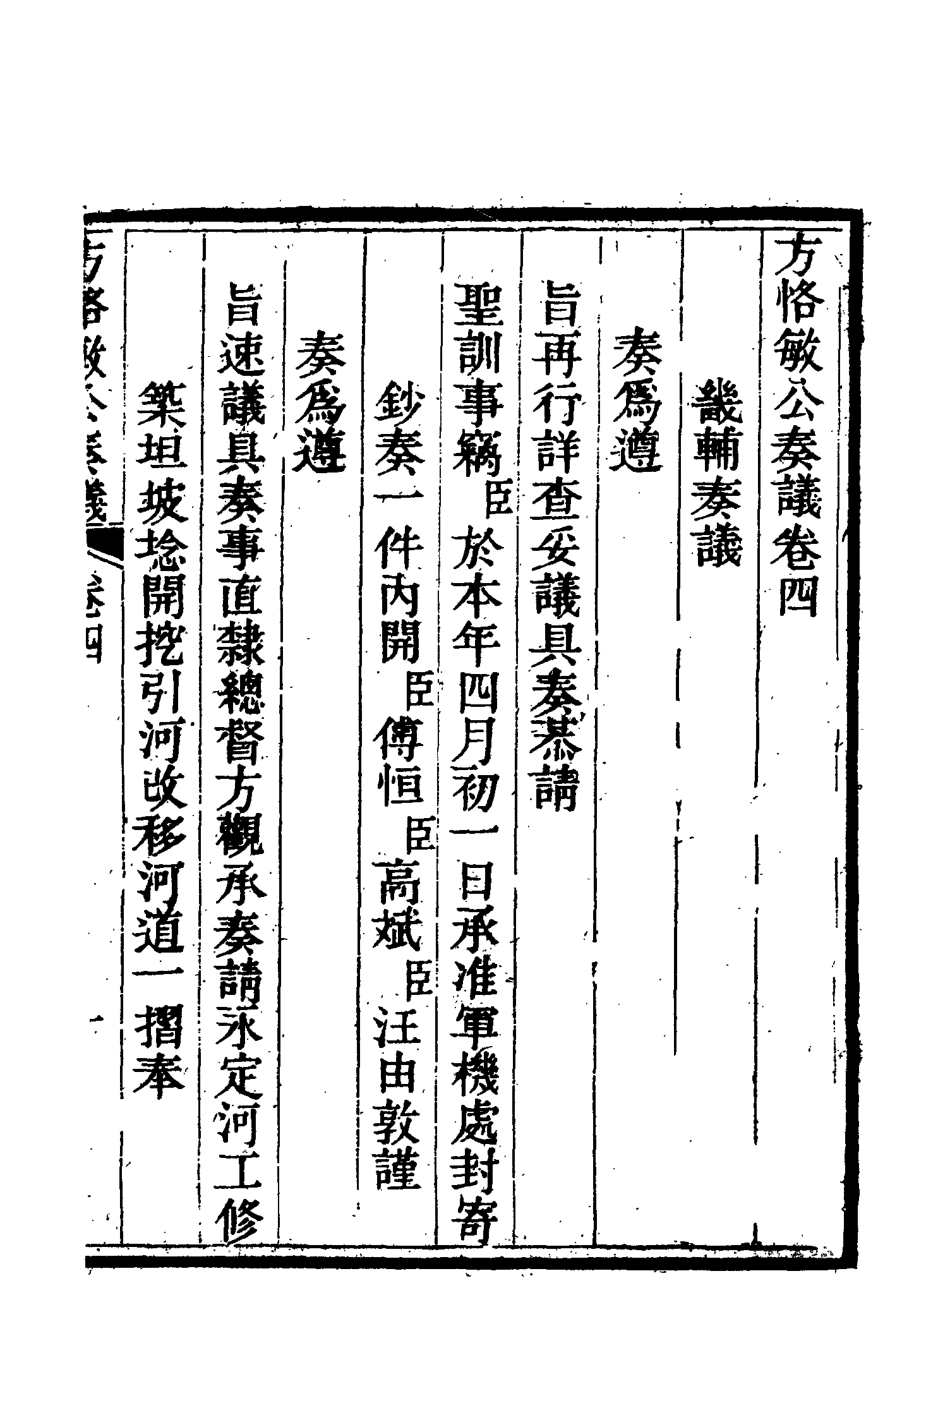 方恪敏公奏議卷四
畿輔奏議
奏爲遵
旨再行詳查妥議具奏恭請
聖訓事竊臣於本年四月初一日承准軍機處封寄
鈔奏一件內開臣傅恒臣高斌臣汪由敦謹
奏爲遵
旨速議具奏事直隸總督方觀承奏請永定河工修
築坦坡埝開挖引河改移河道一摺奉
方恪敏公奏議 卷四 一